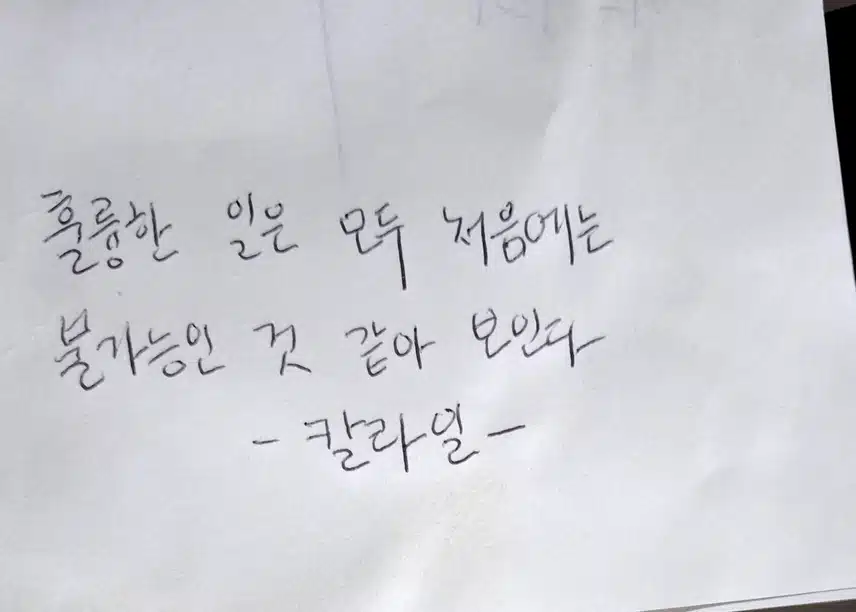 훌륭한 일은 모두 처음에는
불가능인 것 같아 보인다
- 칼라일 -